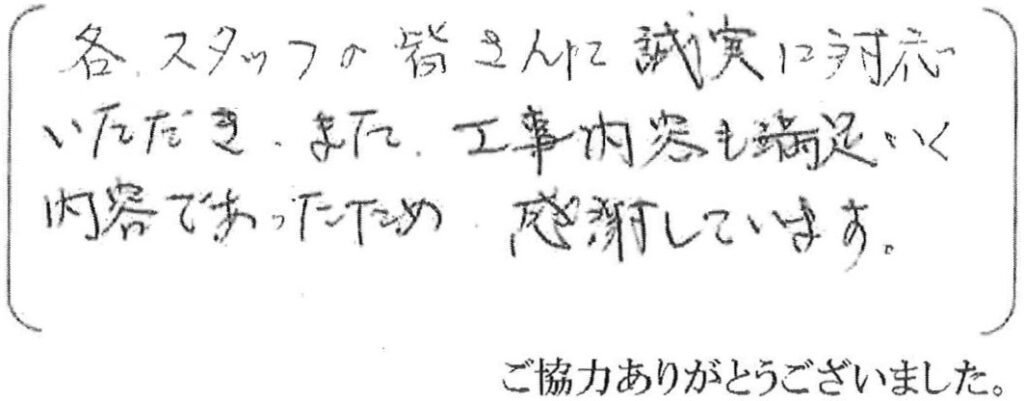 各、スタッフの皆さんに誠実に対応
いただき、また、工事内容も満足いく
内容であったため、感謝しています。
ご協力ありがとうございました。